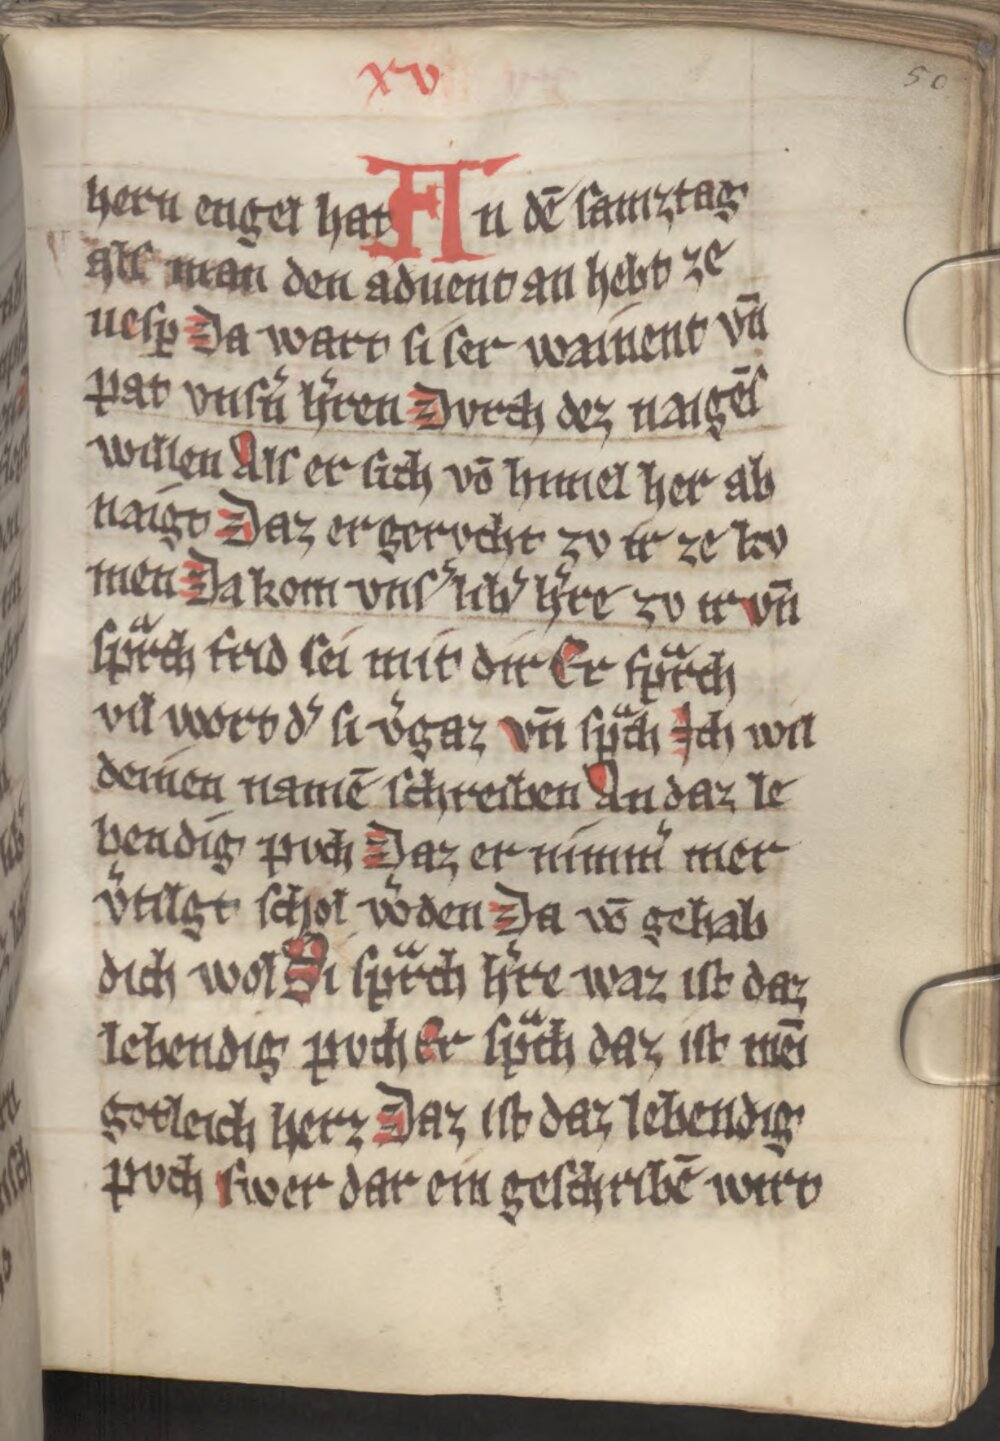 xv
50
hern engel hat An dē samztag
als man den aduent an hebt ze
uesꝑ Da wart si ser wainent vn̄
pat vnsn᷑ h᷑ren Dvrch dez naigēs
willen Als er sich vō himel her ab
naigt Daz er gervcht zv ir ze kv
men Da kom vns᷑ lib᷑ h᷑re zv ir vn̄
spͣrch frid sei mit dir Er spͣrch
vil wort d᷑ si v᷑gaz vn̄ spͣch Ich wil
deinen namē schreiben An daz le
bendig pvch Daz er nimm᷑ mer
v᷑tilgt schol w᷑den Da vō gehab
dich wol Si spͣrch h᷑re waz ist daz
lebendig pvch Er spͣch daz ist mēi
gotleich herz Daz ist daz lebendig
pvch swer dar ein geschribē wirt